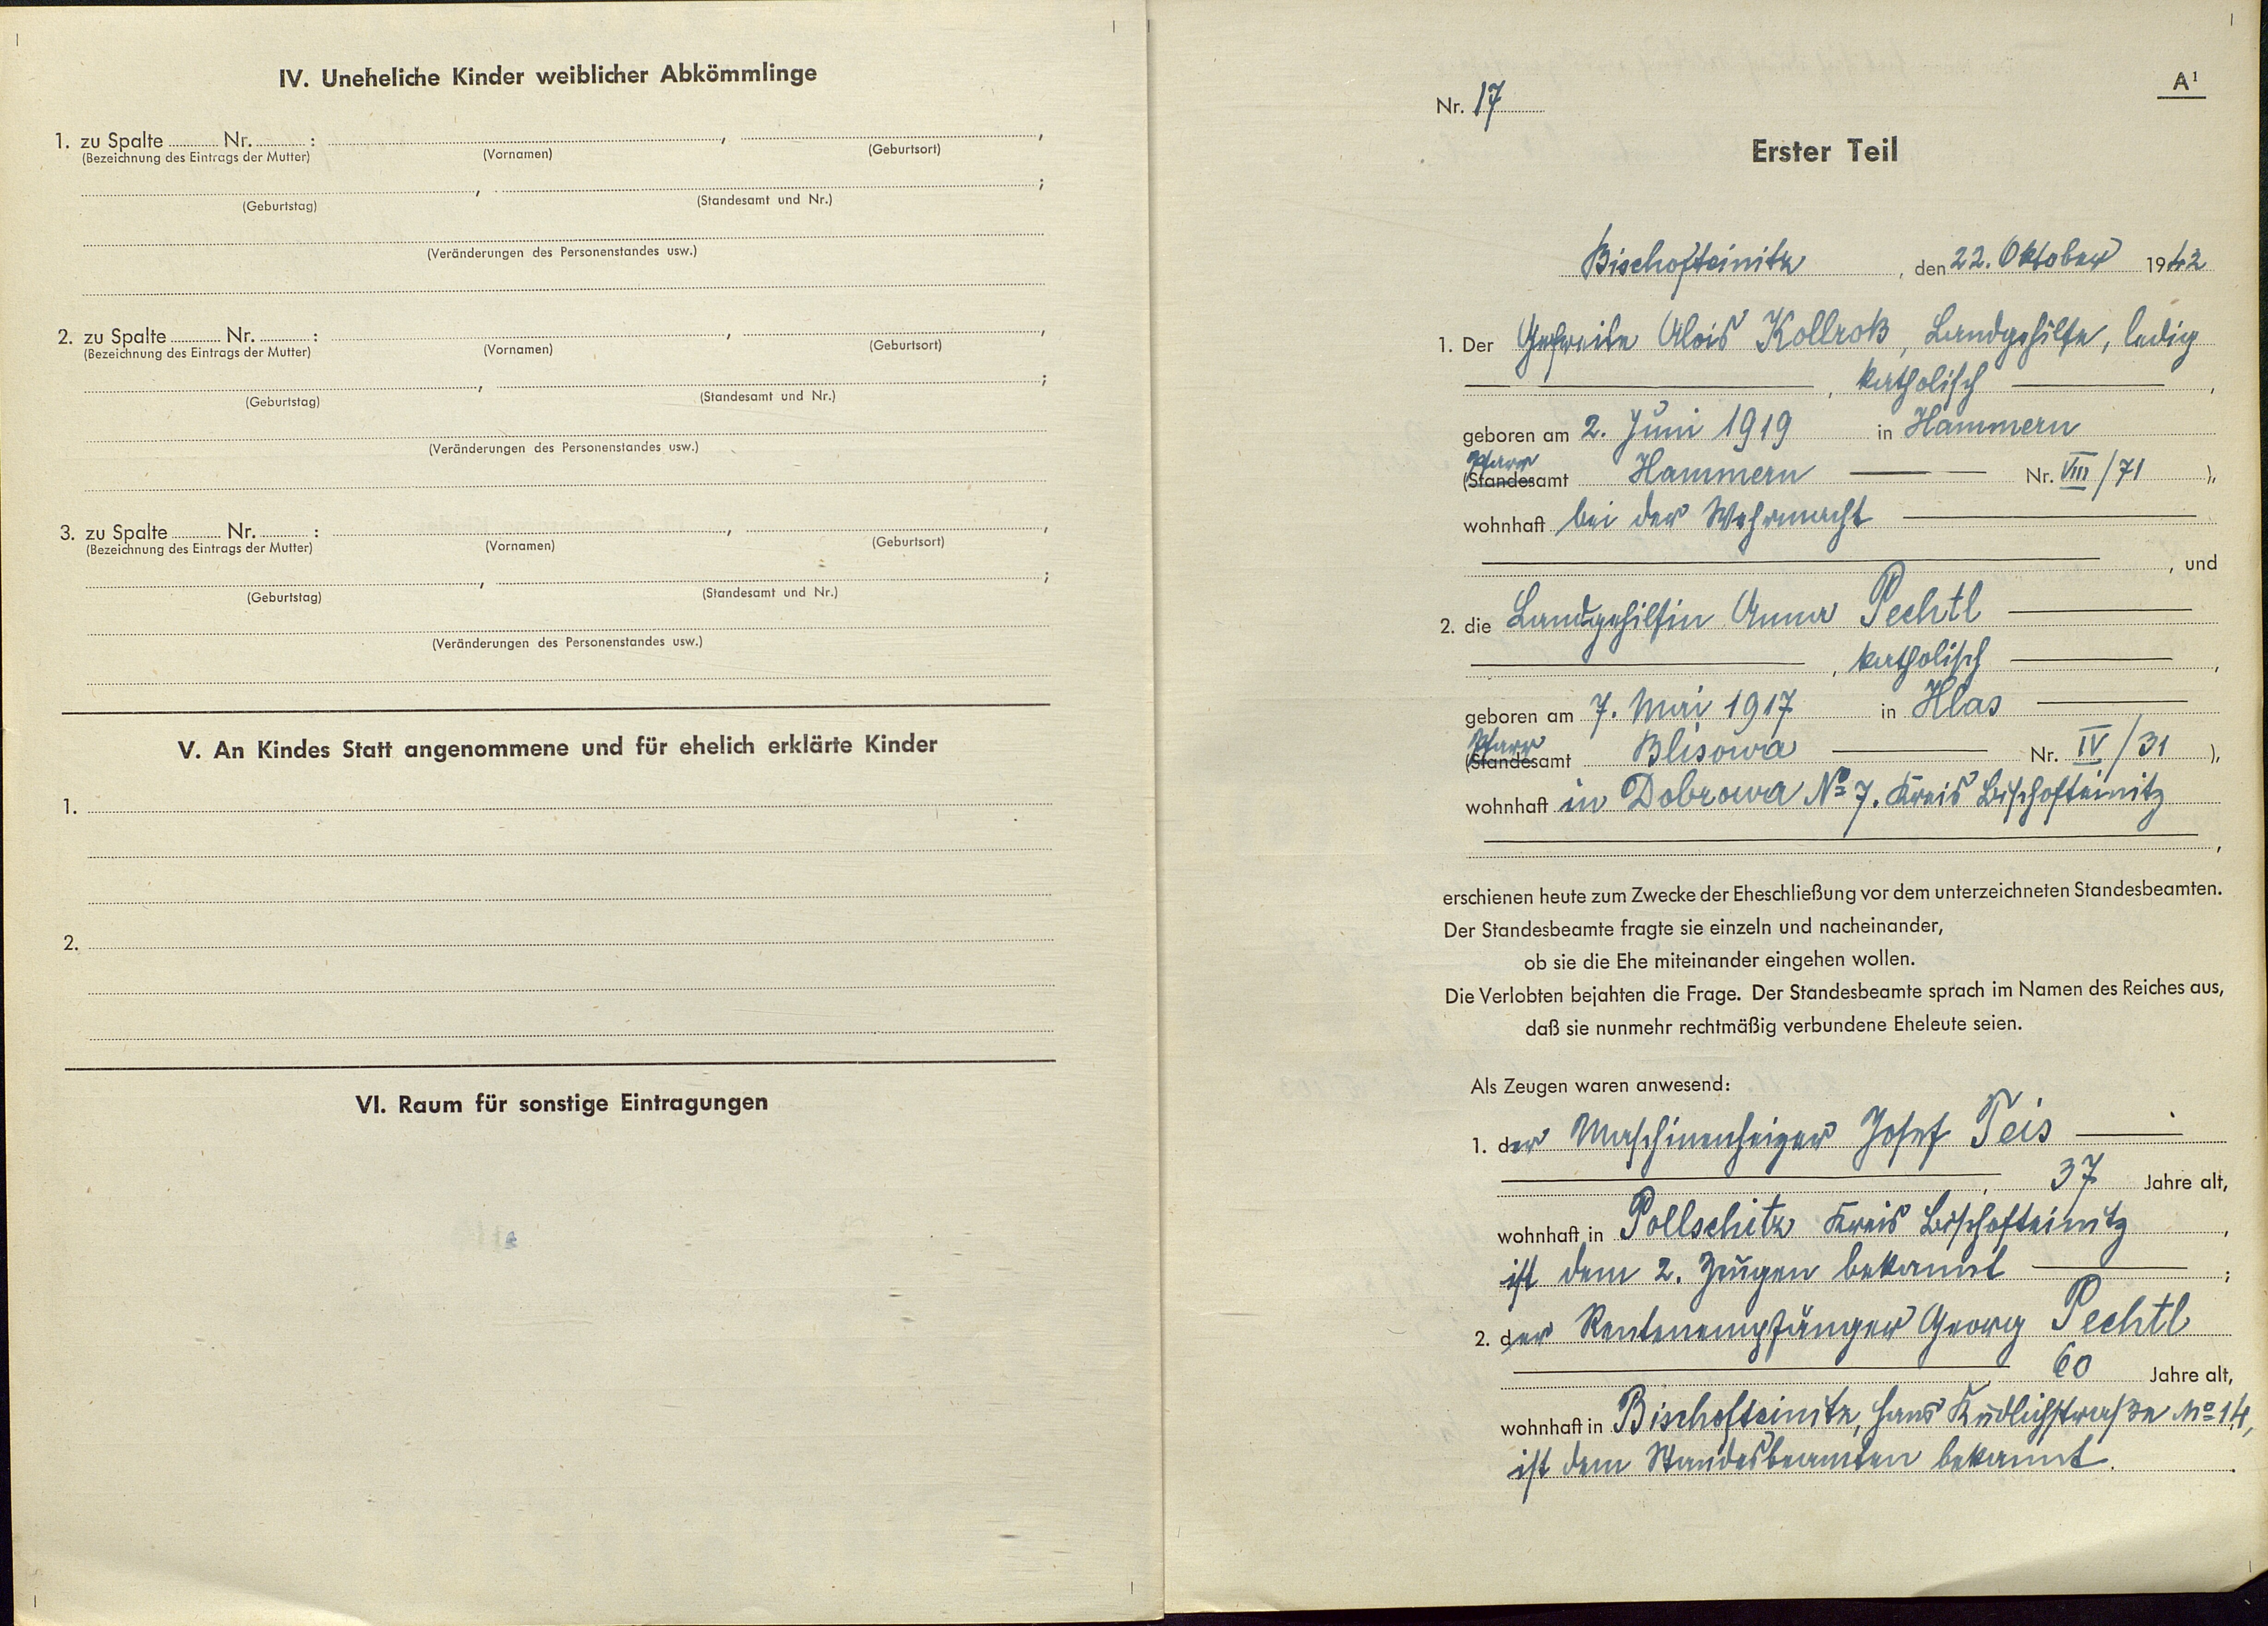 IV. Uneheliche Kinder weiblicher Abkömmlinge
1. zu Spalte ............ Nr. ............ : ............ , ............ ,
(Bezeichnung des Eintrags der Mutter) (Vornamen) (Geburtsort)
............ , ............ ;
(Geburtstag) (Standesamt und Nr.)
(Veränderungen des Personenstandes usw.)
2. zu Spalte ............ Nr. ............ : ............ , ............ ,
(Bezeichnung des Eintrags der Mutter) (Vornamen) (Geburtsort)
............ , ............ ;
(Geburtstag) (Standesamt und Nr.)
(Veränderungen des Personenstandes usw.)
3. zu Spalte ............ Nr. ............ : ............ , ............ ,
(Bezeichnung des Eintrags der Mutter) (Vornamen) (Geburtsort)
............ , ............ ;
(Geburtstag) (Standesamt und Nr.)
(Veränderungen des Personenstandes usw.)
V. An Kindes Statt angenommene und für ehelich erklärte Kinder
1.
2.
VI. Raum für sonstige Eintragungen
A¹
Nr. 17
Erster Teil
Bischofteinitz, den 22. Oktober 1942
1. Der Gefreite Alois Kollroß, Landgehilfe, ledig
, katholisch ,
geboren am 2. Juni 1919 in Hammern
Pfarr
(Standesamt Hammern Nr. VIII/71 ),
wohnhaft bei der Wehrmacht
, und
2. die Landgehilfin Anna Pechtl
, katholisch ,
geboren am 7. Mai 1917 in Hlas
Pfarr
(Standesamt Blisowa Nr. IV/31 ),
wohnhaft in Dobrowa № 7. Kreis Bischofteinitz
,
erschienen heute zum Zwecke der Eheschließung vor dem unterzeichneten Standesbeamten.
Der Standesbeamte fragte sie einzeln und nacheinander,
ob sie die Ehe miteinander eingehen wollen.
Die Verlobten bejahten die Frage. Der Standesbeamte sprach im Namen des Reiches aus,
daß sie nunmehr rechtmäßig verbundene Eheleute seien.
Als Zeugen waren anwesend:
1. der Maschinenheizer Josef Teis
, 37 Jahre alt,
wohnhaft in Pollschitz Kreis Bischofteinitz ,
ist dem 2. Zeugen bekannt ;
2. der Rentenempfänger Georg Pechtl
60 Jahre alt,
wohnhaft in Bischofteinitz, Hans Kudlichstraße № 14,
ist dem Standesbeamten bekannt.